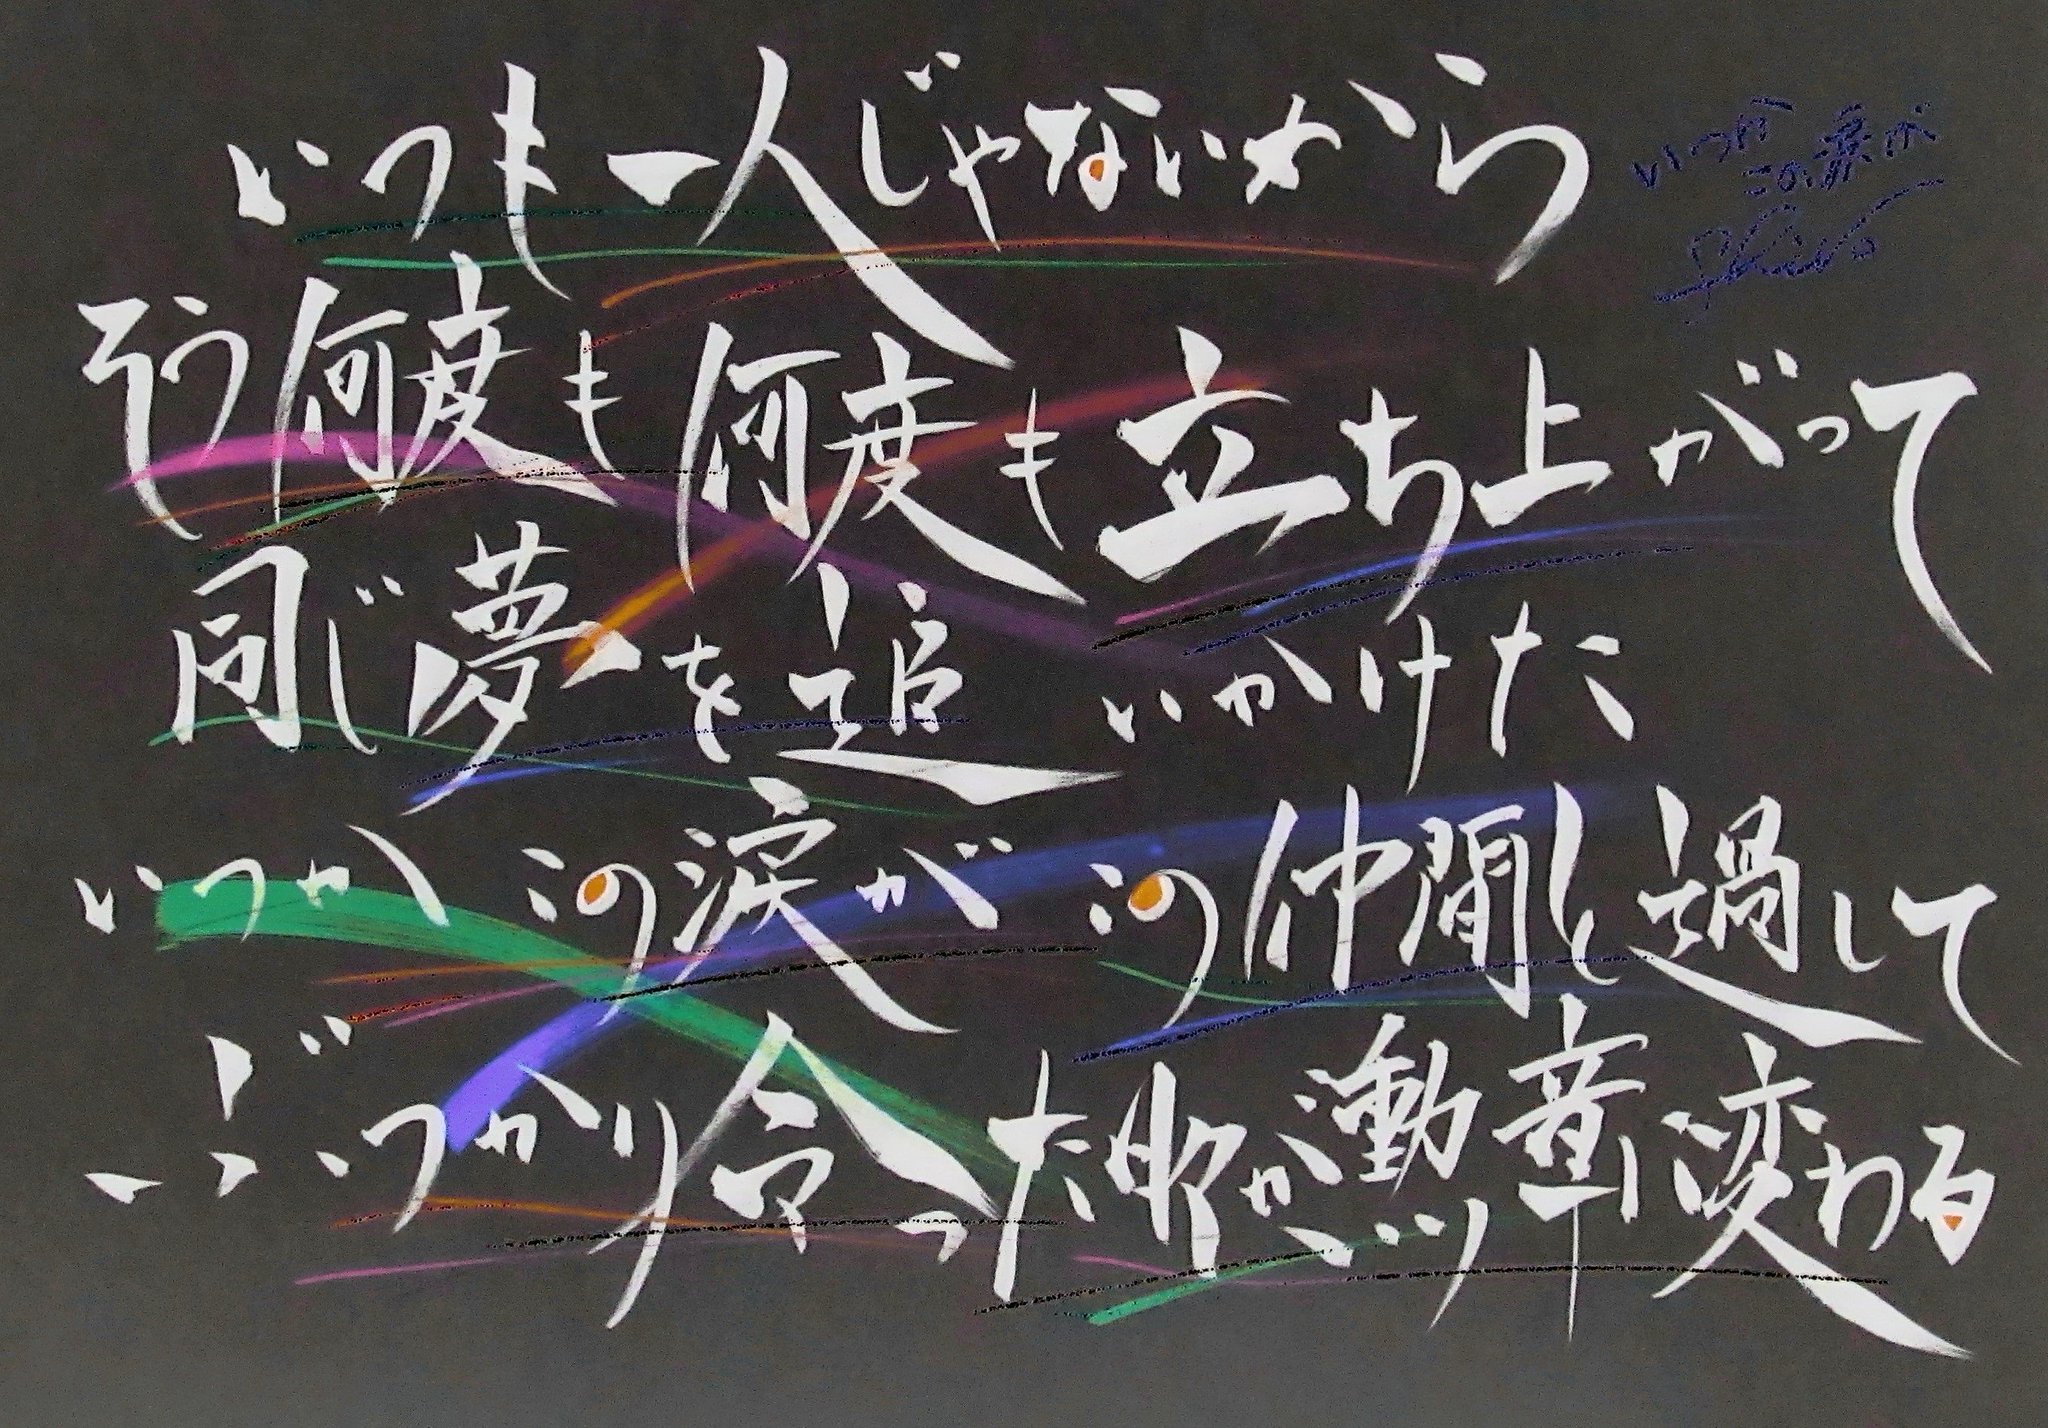 いつも一人じゃないから
そう何度も何度も立ち上がって
同じ夢を追いかけた
いつかこの涙が この仲間と過して
ぶつかり合った日々が勲章に変わる
いつか
この涙が